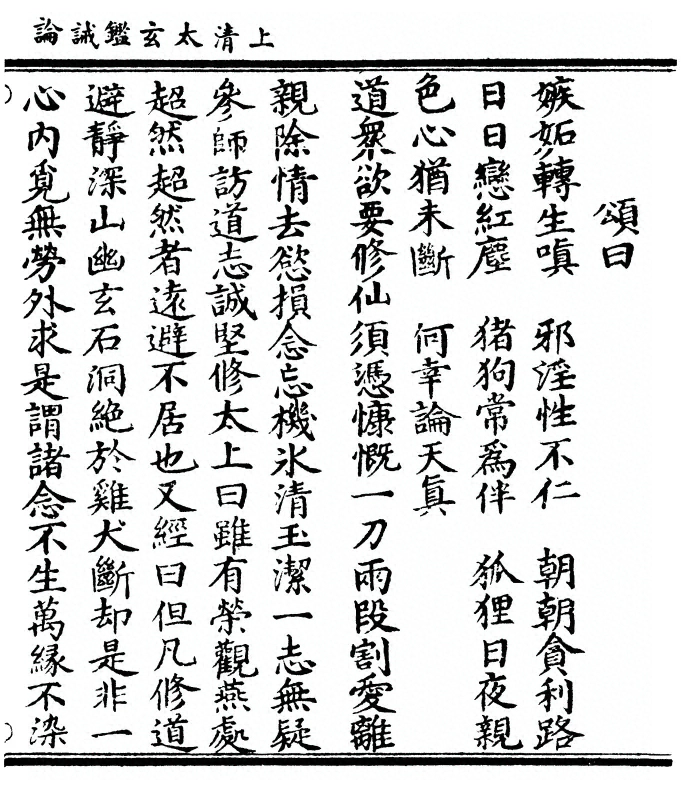 上清太玄鑑誡論
頌曰
嫉妬轉生嗔　邪淫性不仁　朝朝貪利路
日日戀紅塵　猪狗常爲伴　狐狸日夜親
色心猶未斷　何幸論天眞
道衆欲要修仙須憑慷慨一刀兩段割愛離
親除情去慾損念忘機氷清玉潔一志無疑
參師訪道志誠堅修太上曰雖有榮觀燕處
超然超然者遠避不居也又經曰但凡修道
避靜深山幽玄石洞絶於雞犬斷却是非一
心內覓無勞外求是謂諸念不生萬緣不染